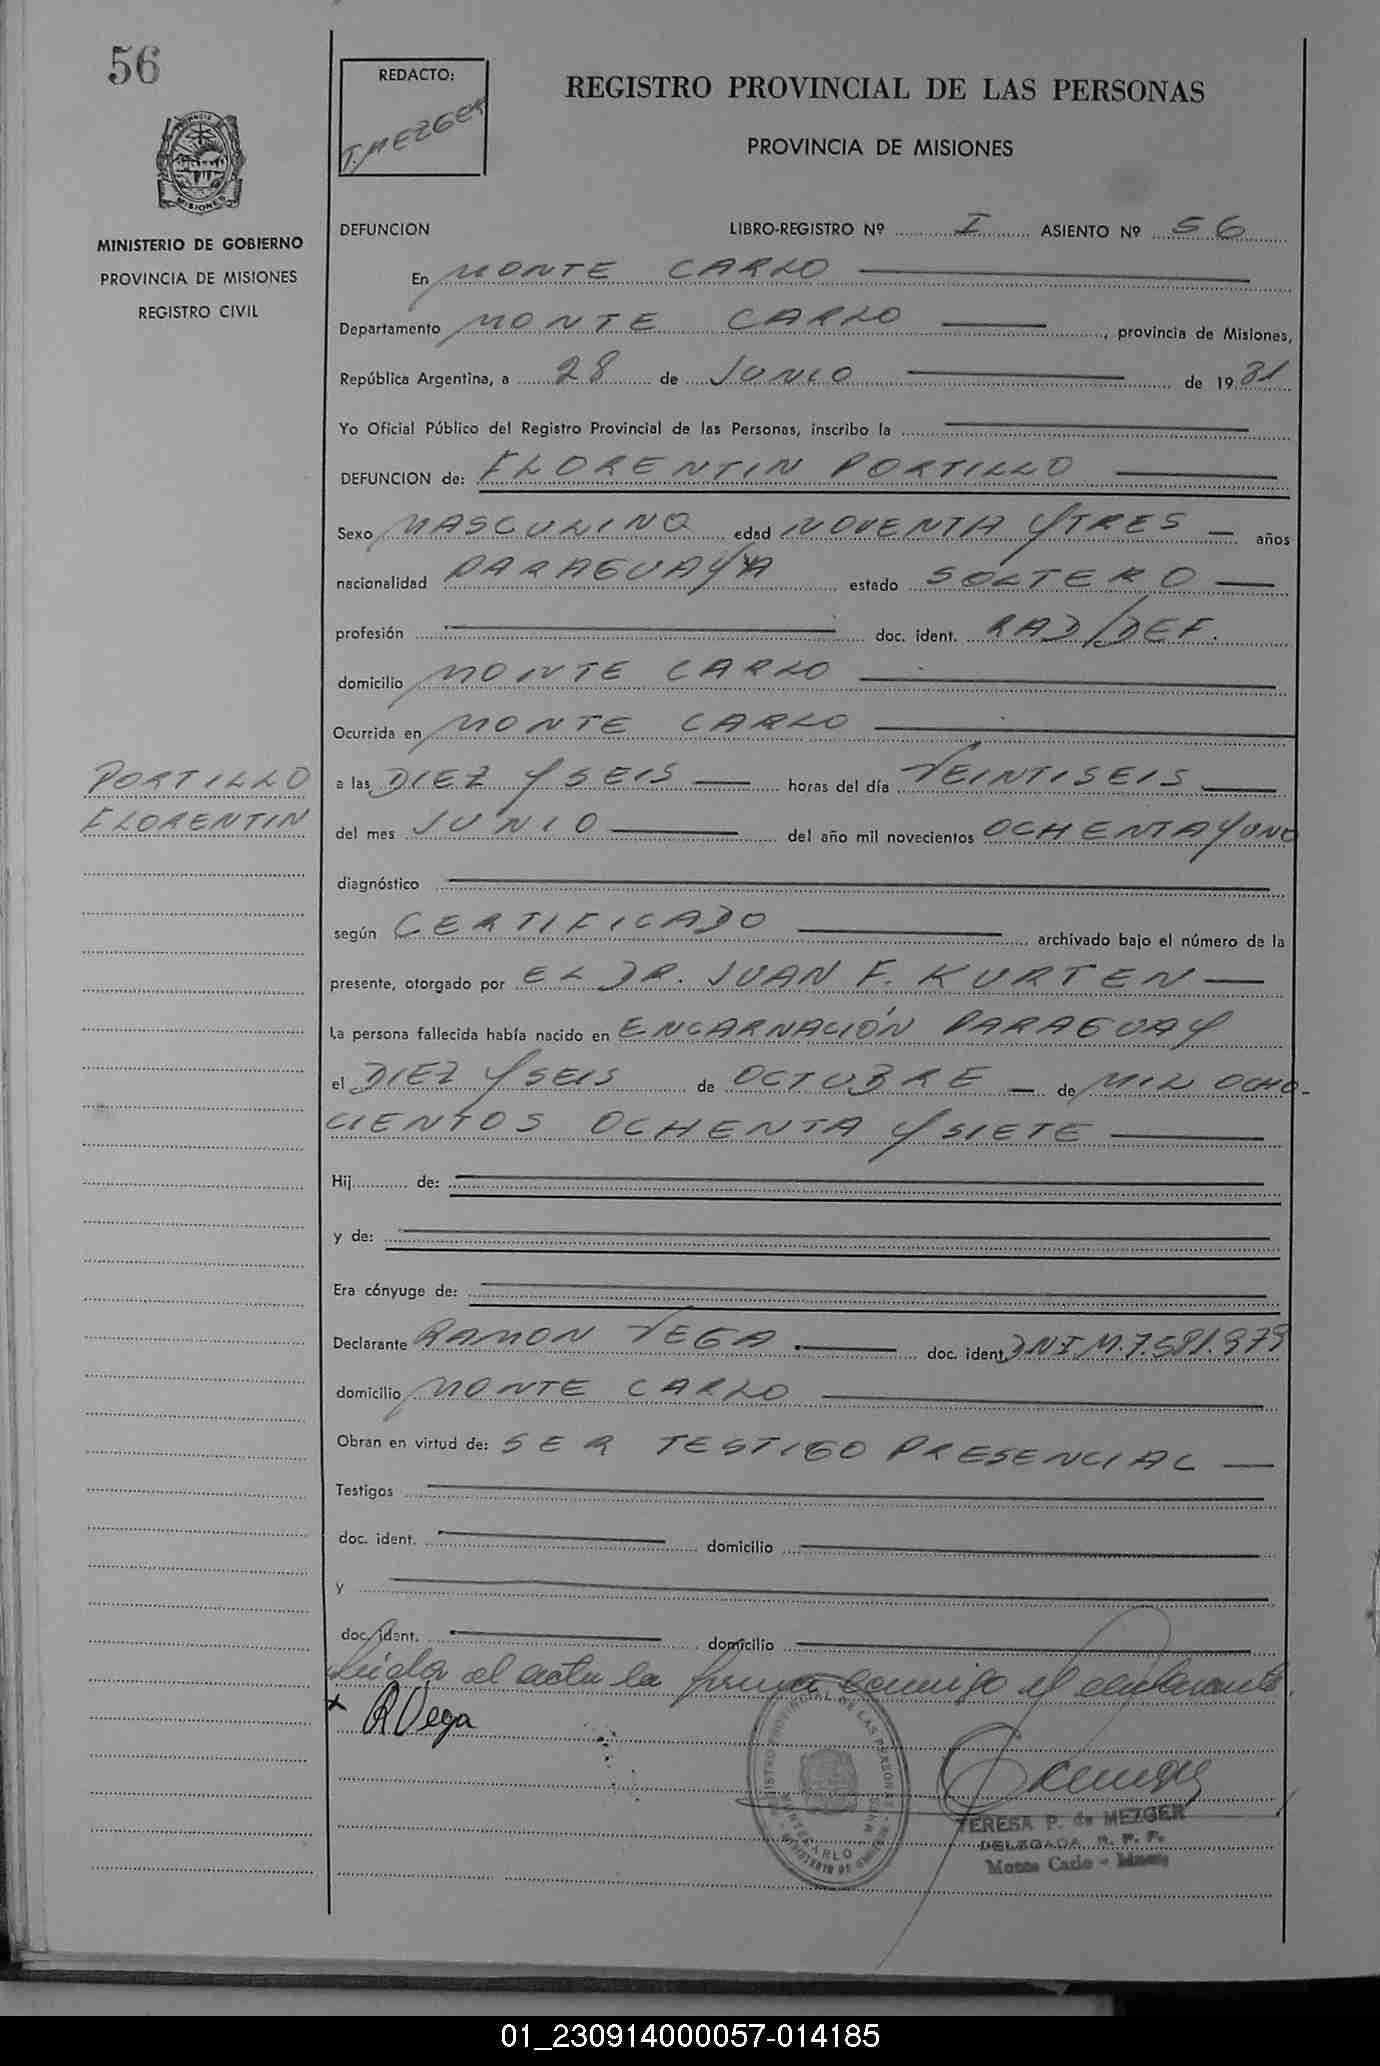 56
REDACTO:
T. MEZGER
REGISTRO PROVINCIAL DE LAS PERSONAS
PROVINCIA DE MISIONES
MISIONES
MINISTERIO DE GOBIERNO
PROVINCIA DE MISIONES
REGISTRO CIVIL
DEFUNCION LIBRO-REGISTRO Nº I ASIENTO Nº 56
En MONTE CARLO
Departamento MONTE CARLO, provincia de Misiones,
República Argentina, a 28 de JUNIO de 1981
Yo Oficial Público del Registro Provincial de las Personas, inscribo la
DEFUNCION de: FLORENTIN PORTILLO
Sexo MASCULINO edad NOVENTA Y TRES años
nacionalidad PARAGUAYA estado SOLTERO
profesión doc. ident. RAD/DEF.
domicilio MONTE CARLO
Ocurrida en MONTE CARLO
PORTILLO
FLORENTIN
a las DIEZ Y SEIS horas del día VEINTISEIS
del mes JUNIO del año mil novecientos OCHENTA Y UNO
diagnóstico
según CERTIFICADO archivado bajo el número de la
presente, otorgado por EL DR. JUAN F. KURTEN
La persona fallecida había nacido en ENCARNACIÓN PARAGUAY
el DIEZ Y SEIS de OCTUBRE de MIL OCHO-
CIENTOS OCHENTA Y SIETE
Hij de:
y de:
Era cónyuge de:
Declarante RAMON VEGA doc. ident. DNI M.7.581.979
domicilio MONTE CARLO
Obran en virtud de: SER TESTIGO PRESENCIAL
Testigos
doc. ident. domicilio
y
doc. ident. domicilio
Leída el acta la firma conmigo el declarante.
x RVega
REGISTRO PROVINCIAL DE LAS PERSONAS
MONTECARLO
TERESA P. de MEZGER
DELEGADA R. P. P.
Monte Carlo - Mnes
01_230914000057-014185